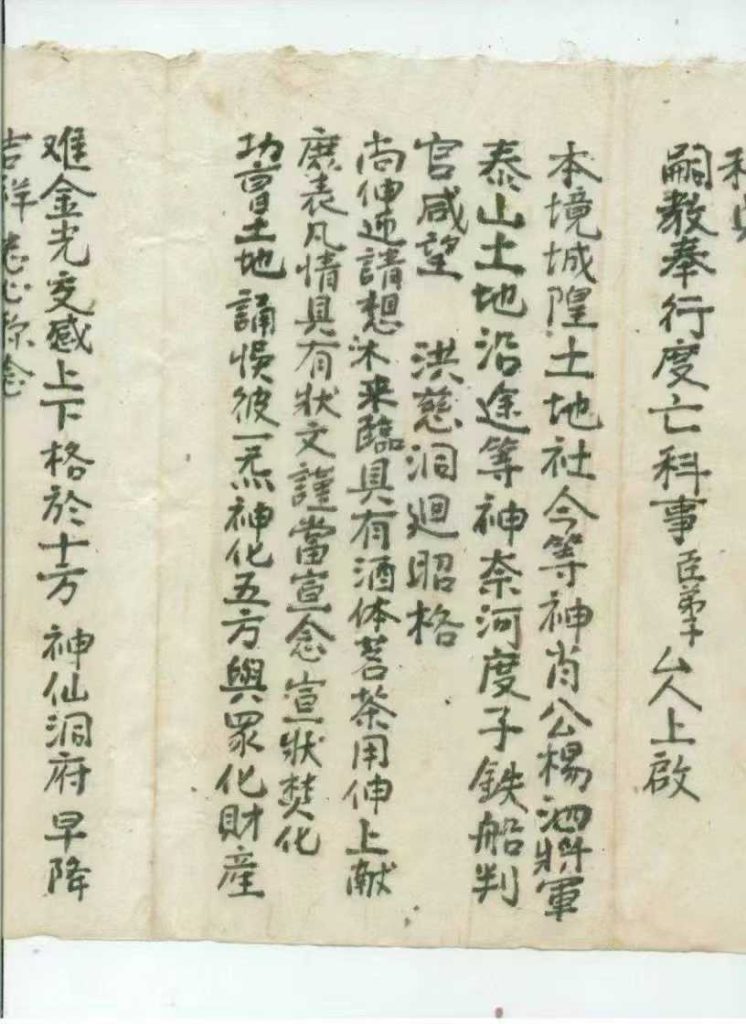 嗣教奉行度亡科事臣弟子厶人上啟
本境城隍土地社令等神肖公楊泗將軍
泰山土地沿途等神奈河度子鉄船判
官咸望 洪慈洞廻昭格
尚伸迎請想沐来臨具有酒体茗茶用伸上献
庶表凡情具有狀文謹當宣念宣狀焚化
功曹土地 誦悞彼一炁神化五方與眾化財産
难金光交感上下格於十方 神仙洞府早降
吉祥